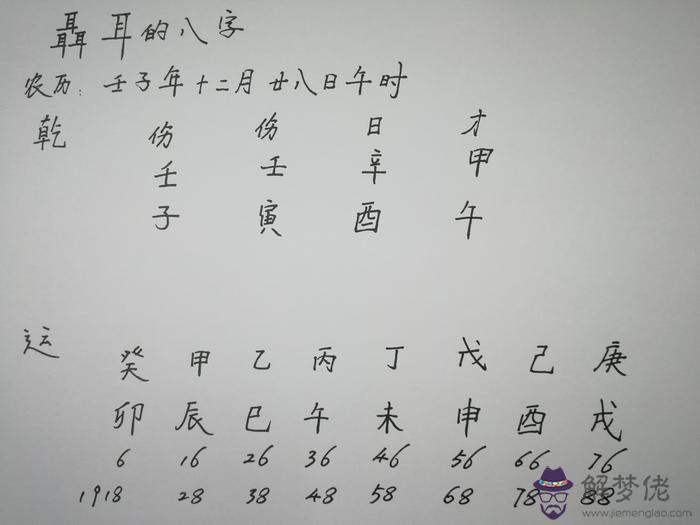 聶耳的八字
农历：壬子年十二月廿八日午时
乾 伤 伤 日 才
壬 壬 辛 甲
子 寅 酉 午
运 癸 甲 乙 丙 丁 戊 己 庚
卯 辰 巳 午 未 申 酉 戌
6 16 26 36 46 56 66 76
1918 28 38 48 58 68 78 88
解梦佬
www.jiemenglao.com